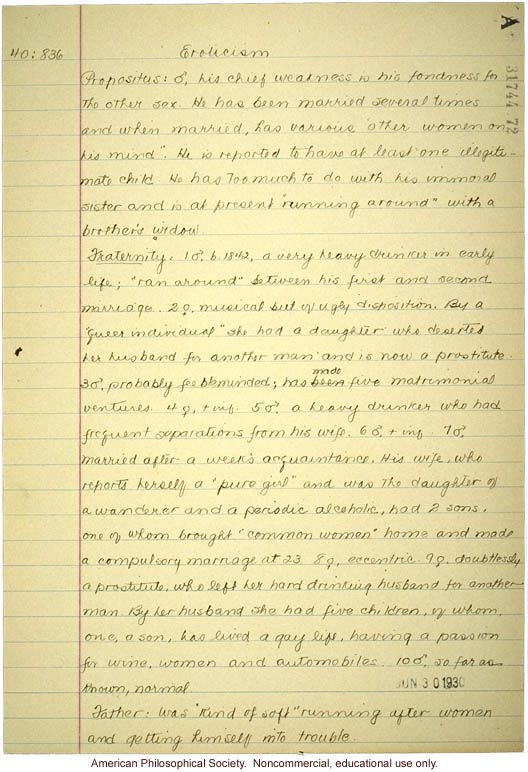 A 31744 72
40:836 Eroticism
Propositus: ♂, his chief weakness is his fondness for
the other sex. He has been married several times
and when married, has various "other women on
his mind". He is reported to have at least one illegiti-
mate child. He has too much to do with his immoral
sister and is at present "running around" with a
brother's widow.
Fraternity, 1♂, b. 1842, a very heavy drinker in early
life; "ran around" between his first and second
marriage. 2♀, musical but of ugly disposition. By a
"queer individual" she had a daughter who deserted
her husband for another man and is now a prostitute.
3♂, probably feebleminded; has made five matrimonial
ventures. 4♀, + inf. 5♂, a heavy drinker who had
frequent separations from his wife. 6♂, + inf. 7♂,
married after a week's acquaintance. His wife, who
reports herself a "pure girl" and was the daughter of
a wanderer and a periodic alcoholic, had 2 sons,
one of whom brought "common women" home and made
a compulsory marriage at 23. 8♀, eccentric. 9♀, doubtlessly
a prostitute, who left her hard drinking husband for another
man. By her husband she had five children, of whom,
one, a son, has lived a gay life, having a passion
for wine, women and automobiles. 10♂, so far as
known, normal.
JUN 30 1930
Father: was "kind of soft" running after women
and getting himself into trouble.
American Philosophical Society. Noncommercial, educational use only.